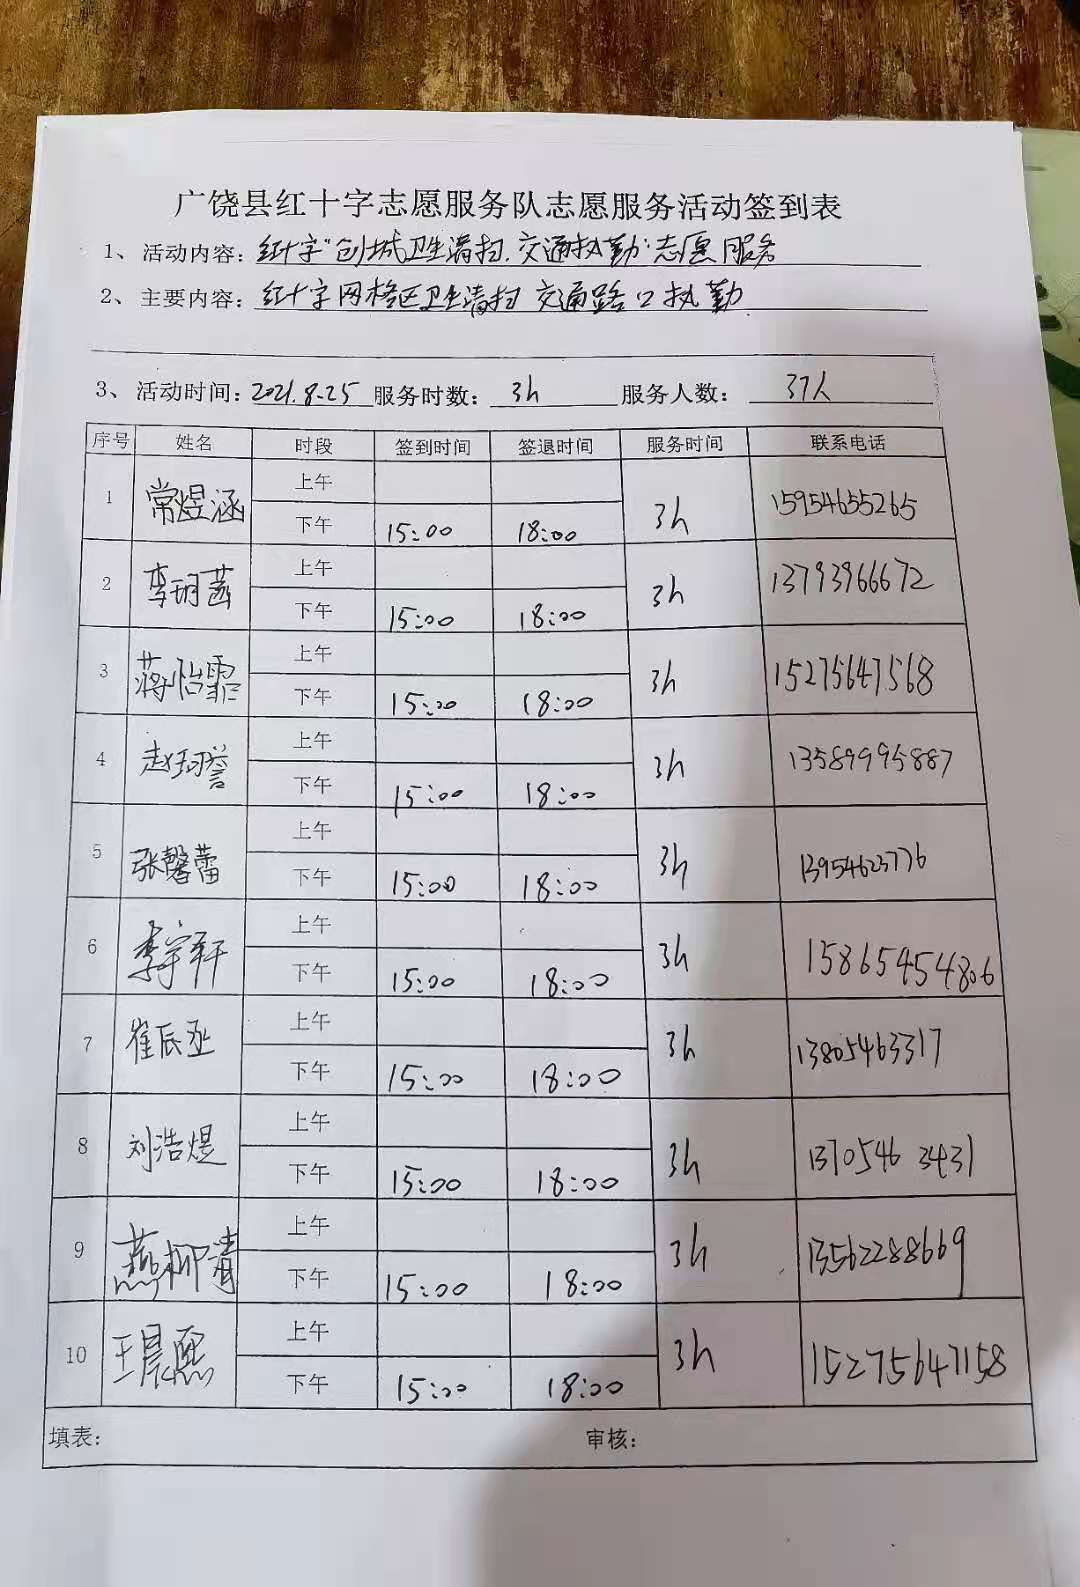 广饶县红十字志愿服务队志愿服务活动签到表
1、活动内容：红十字“创城卫生清扫.交通执勤”志愿服务
2、主要内容：红十字网格区卫生清扫 交通路口执勤
3、活动时间：2021.8.25 服务时数：3h 服务人数：37人
序号 姓名 时段 签到时间 签退时间 服务时间 联系电话
上午
1 常煜涵 3h 15954655265
下午 15:00 18:00
上午
2 李玥菡 3h 13793966672
下午 15:00 18:00
上午
3 蒋怡霏 3h 15275647568
下午 15:00 18:00
上午
4 赵珂誉 3h 13589995887
下午 15:00 18:00
上午
5 张馨蕾 3h 13954623776
下午 15:00 18:00
上午
6 李宇轩 3h 158654454806
下午 15:00 18:00
上午
7 崔辰丞 3h 13805463317
下午 15:00 18:00
上午
8 刘浩煜 3h 1370546 3431
下午 15:00 18:00
上午
9 燕柳清 3h 13562288669
下午 15:00 18:00
上午
10 王晨熙 3h 15275647158
下午 15:00 18:00
填表： 审核：